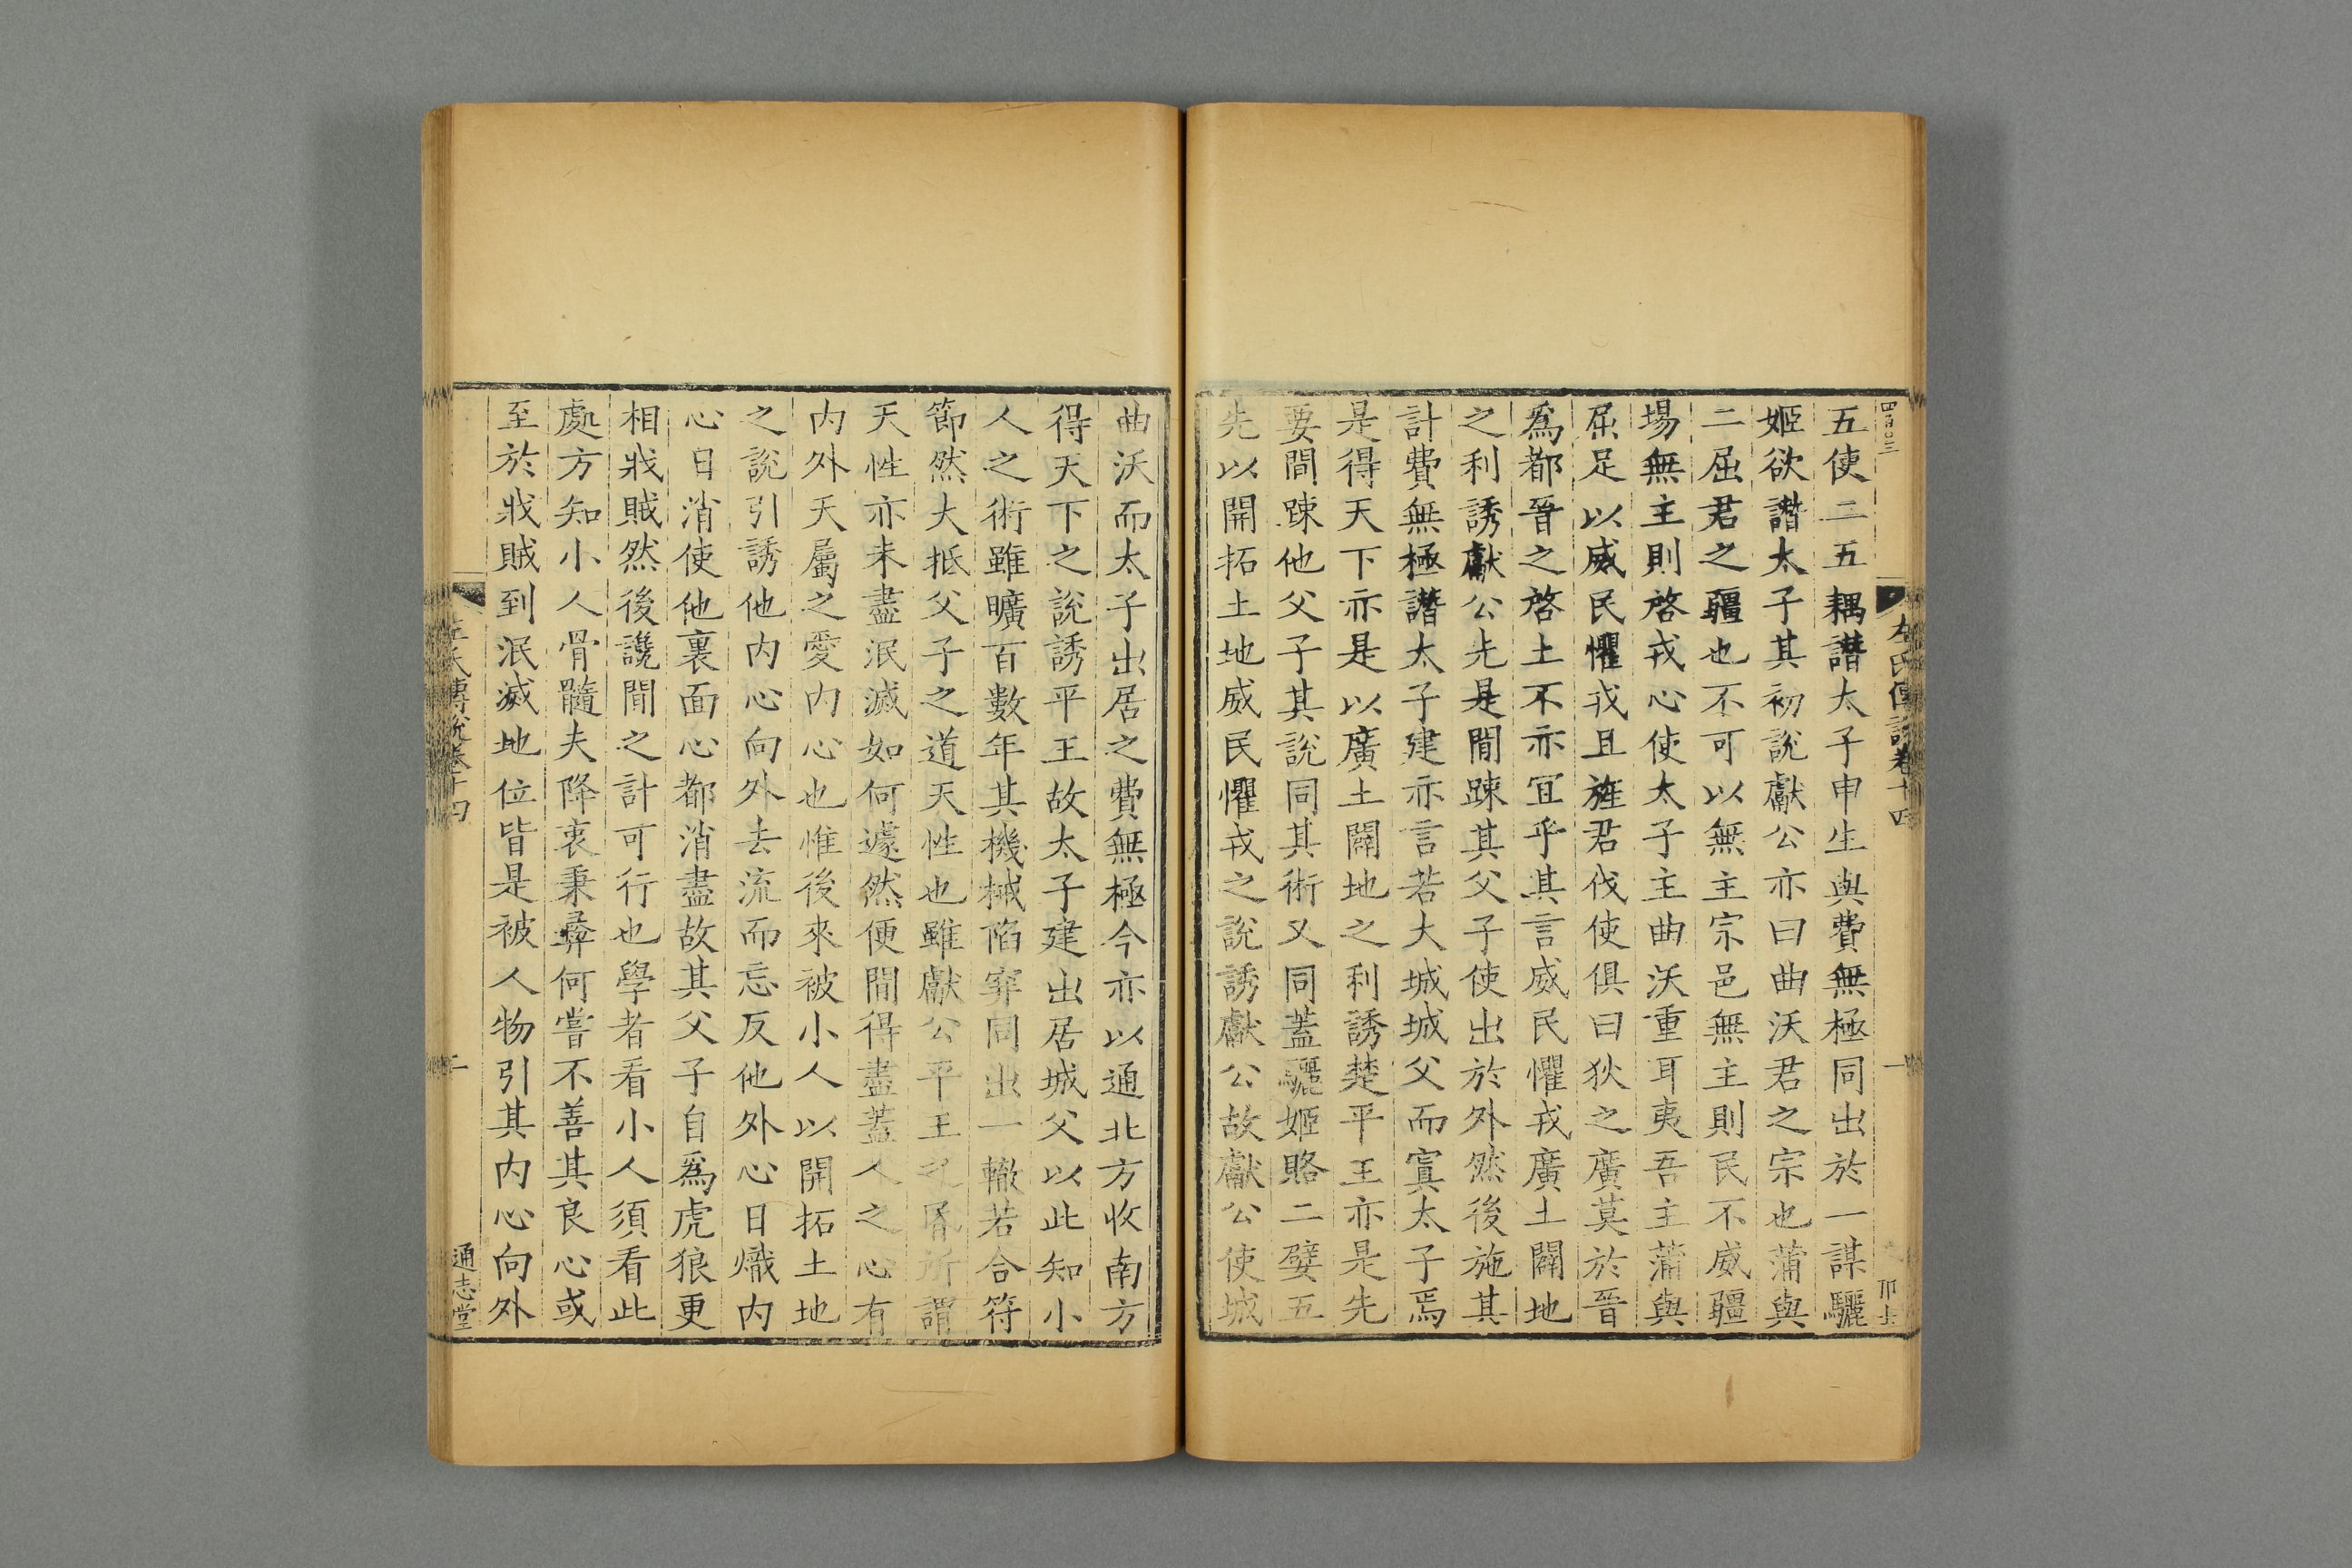 四百○三
左氏傳說卷十四
一
五使二五耦譖太子申生與費無極同出於一謀驪
姬欲譖太子其初說獻公亦曰曲沃君之宗也蒲與
二屈君之疆也不可以無主宗邑無主則民不威疆
場無主則啓戎心使太子主曲沃重耳夷吾主蒲與
屈足以威民懼戎且旌君伐使俱曰狄之廣莫於晉
爲都晉之啓土不亦宜乎其言威民懼戎廣土闢地
之利誘獻公先是間踈其父子使出於外然後施其
計費無極譖太子建亦言若大城城父而寘太子焉
是得天下亦是以廣土闢地之利誘楚平王亦是先
要間踈他父子其說同其術又同蓋驪姬賂二嬖五
先以開拓土地威民懼戎之說誘獻公故獻公使城
曲沃而太子出居之費無極今亦以通北方收南方
得天下之說誘平王故太子建出居城父以此知小
人之術雖曠百數年其機械陷穽同出一轍若合符
節然大抵父子之道天性也雖獻公平王之昏所謂
天性亦未盡泯滅如何遽然便間得盡蓋人之心有
内外天屬之愛内心也惟後來被小人以開拓土地
之說引誘他内心向外去流而忘反他外心日熾内
心日消使他裏面心都消盡故其父子自爲虎狼更
相戕賊然後讒間之計可行也學者看小人須看此
處方知小人骨髓夫降衷秉彞何嘗不善其良心或
至於戕賊到泯滅地位皆是被人物引其内心向外
左氏傳說卷十四
二
通志堂